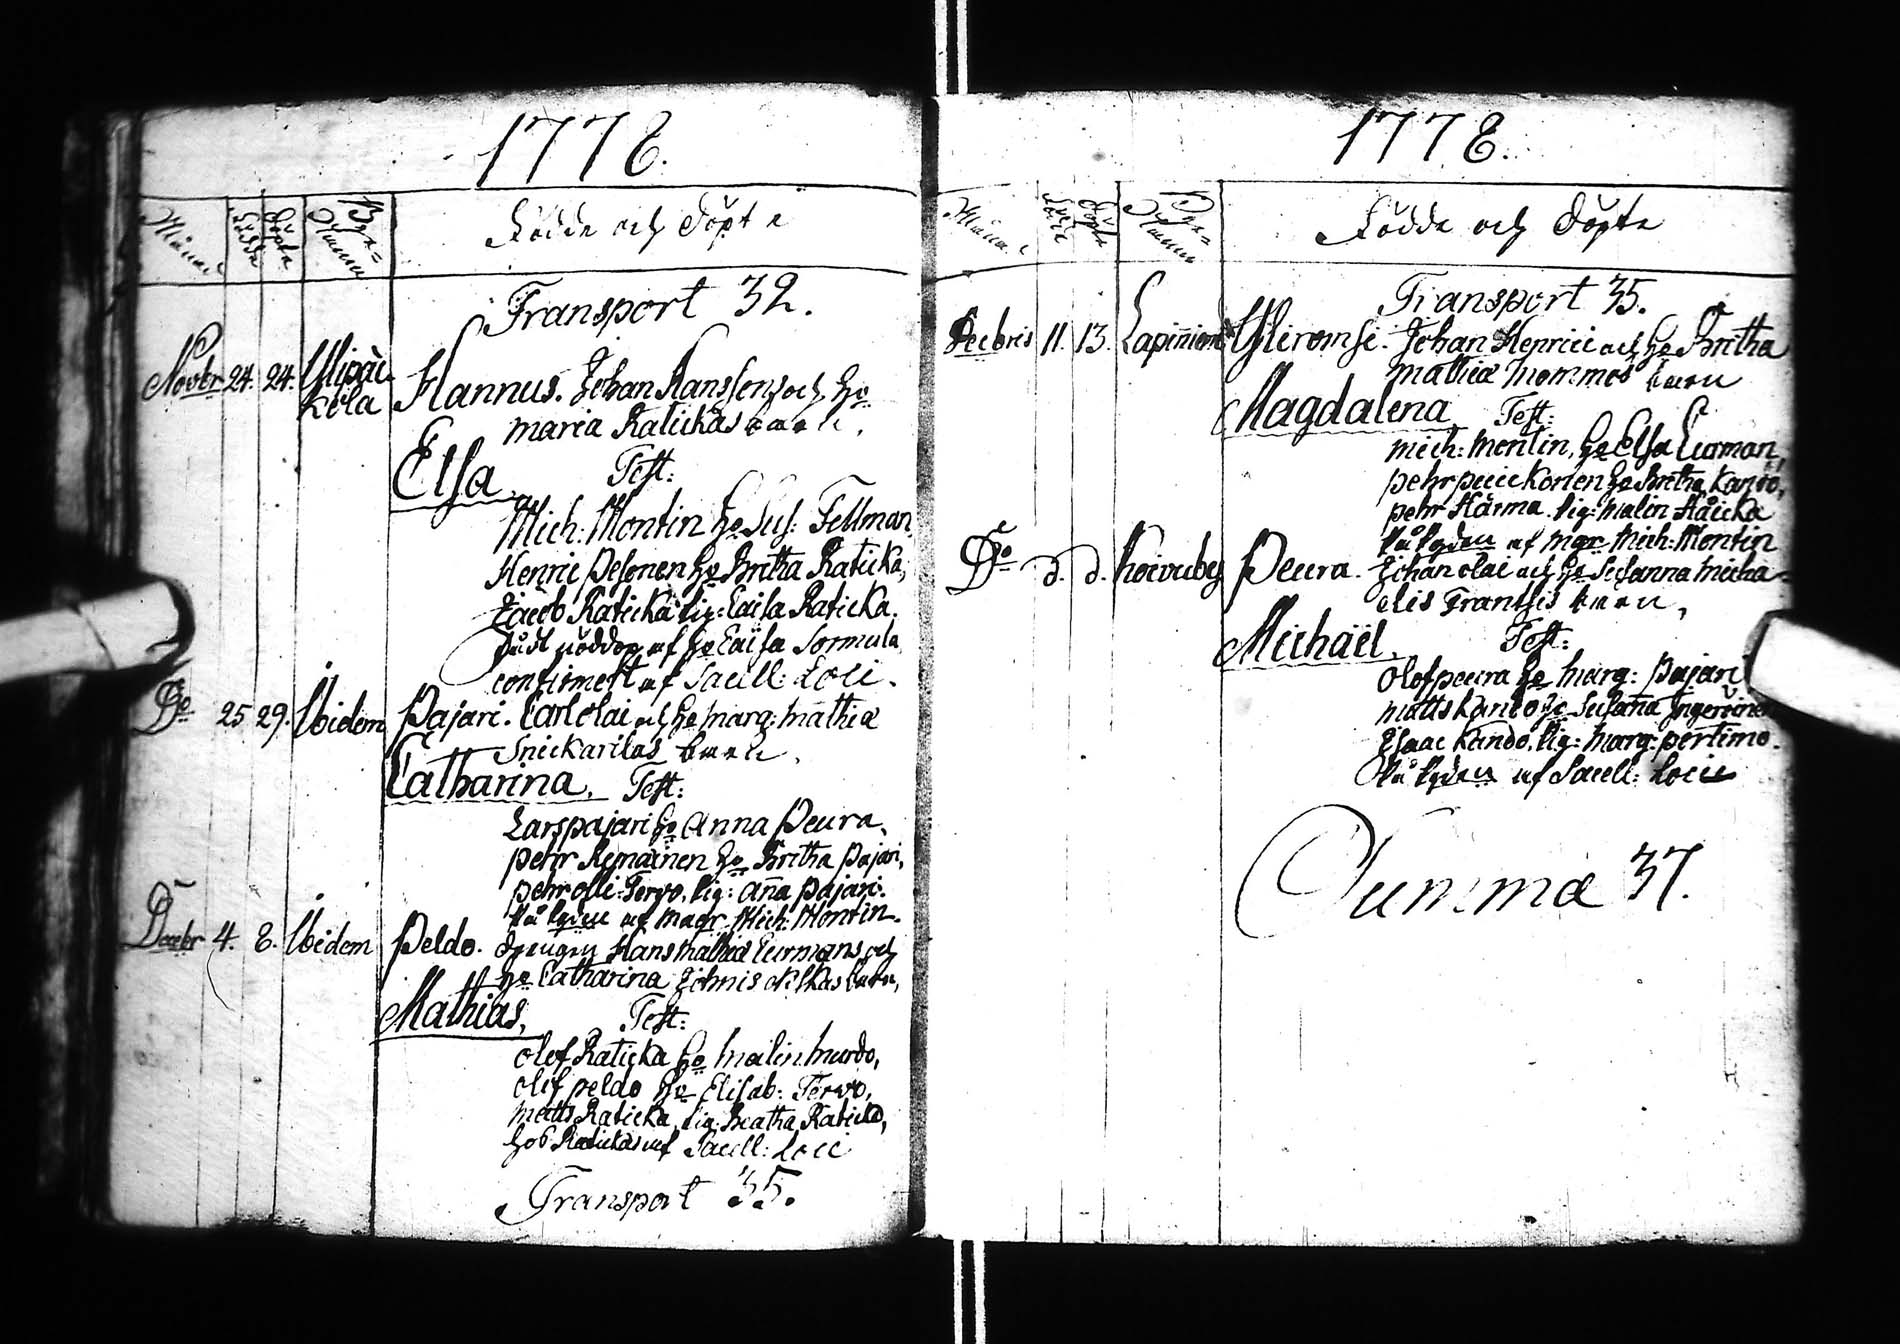 1778.
Månad
Födde
Döpte
Bye-
Namn
Födde och Döpte
Transport 32.
Novbr 24. 24. Ylipää
kölä
Hannus. Johan Hanssons och Ho
maria Ratickas barn.
Elsa
Test:
Mich: Montin Ho Sus: Fellman,
Henric Pesonen Ho Britha Raticka,
Jacob Raticka Pig: Caisa Raticka.
af Ho Caisa Sormula
confirmert af Sacell: Loci.
Do 25 29. Ibidem
Pajari. Carl Olai och Ho marg: mathiæ
Snickarilas barn.
Catharina. Test:
Lars pajari Ho Anna Peura,
pehr Ho Britha pajari,
pehr olli-Tervo, Pig: Aña pajari.
af magr Mich: Montin.
Decebr 4. 8. Ibidem
Peldo. Drengen Hans mathiæ Curmans och
Ho Catharina Johnis barn,
Mathias, Test:
Olof Raticka Ho malin murdo,
Olof peldo Ho Elisab: Tervo,
matts Raticka, Pig: Beatha Raticka,
hos Ratickas af Sacell: Loci
Transport 35.
1778.
Månad
Födde
Döpte
Bye-
Namn
Födde och Döpte
Transport 35.
Decbris 11. 13. Lapiñiemi
Yliromsi. Johan Henrici och Ho Britha
mathiæ mommos barn
Magdalena Test:
mich: montin, Ho Elsa Curman,
pehr puickonen Ho Britha Kando,
pehr Härma. Pig: malin Håicka
På kyrkan af mgr Mich: Montin
Do d. d. Koivuby
Peura. Johan Olai och Ho Susanna micha-
elis Frantsis barn,
Michaël. Test:
Olof peura Ho marg: pajari
matts Kando Ho Susaña
Isaac Kando, Pig: marg: pertimo.
På kyrkan af Sacell: Loci
Summa 37.